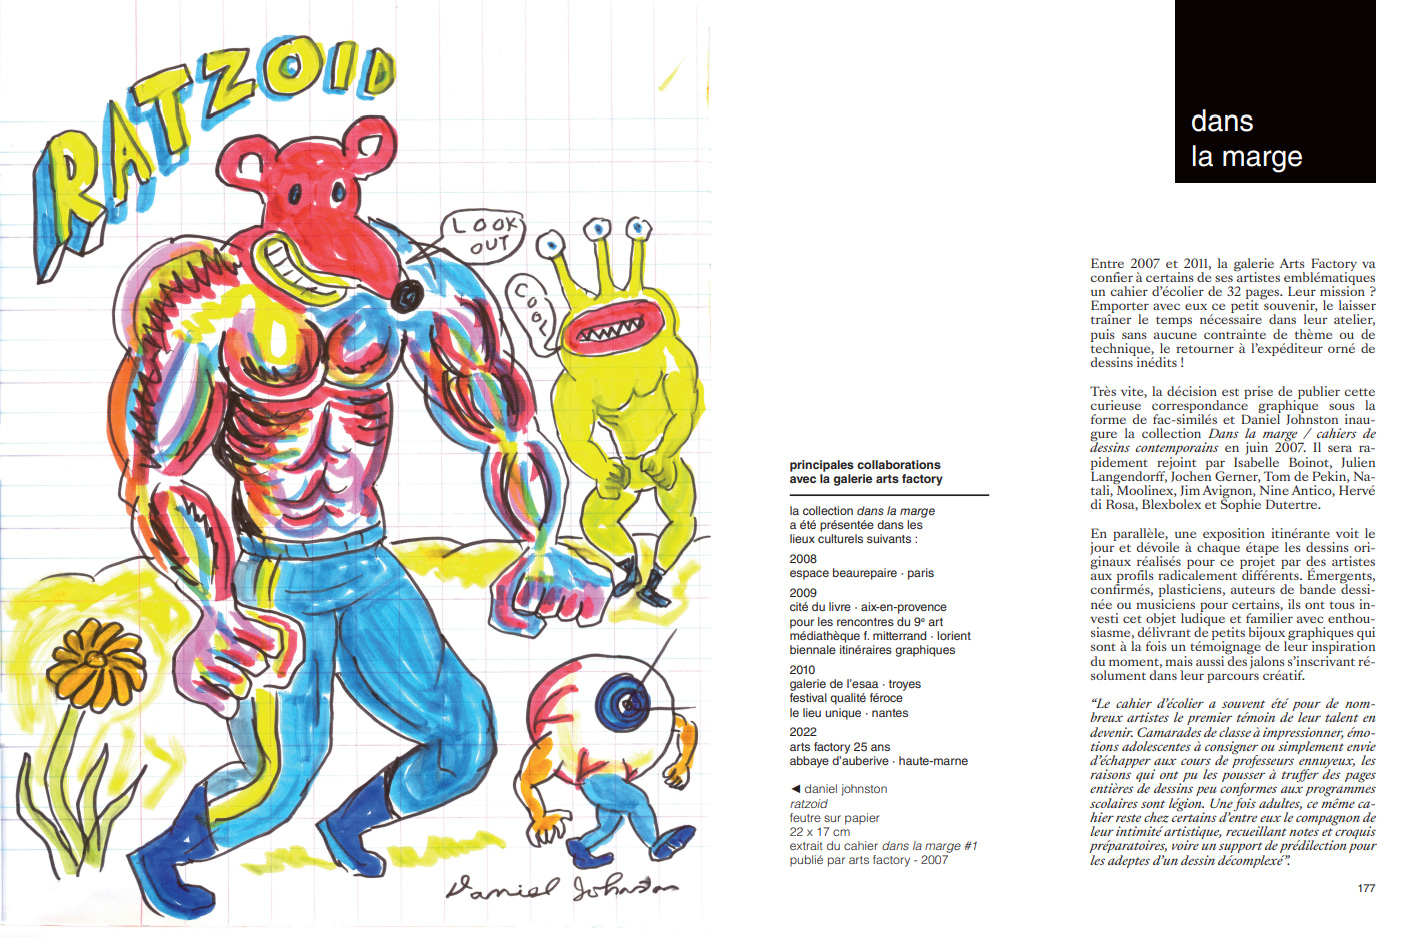 RATZOID
LOOK
OUT
COOL
Daniel Johnston
dans
la marge
principales collaborations
avec la galerie arts factory
la collection dans la marge
a été présentée dans les
lieux culturels suivants :
2008
espace beaurepaire · paris
2009
cité du livre · aix-en-provence
pour les rencontres du 9e art
médiathèque f. mitterrand · lorient
biennale itinéraires graphiques
2010
galerie de l'esaa · troyes
festival qualité féroce
le lieu unique · nantes
2022
arts factory 25 ans
abbaye d'auberive · haute-marne
◄ daniel johnston
ratzoid
feutre sur papier
22 x 17 cm
extrait du cahier dans la marge #1
publié par arts factory - 2007
Entre 2007 et 2011, la galerie Arts Factory va
confier à certains de ses artistes emblématiques
un cahier d'écolier de 32 pages. Leur mission ?
Emporter avec eux ce petit souvenir, le laisser
traîner le temps nécessaire dans leur atelier,
puis sans aucune contrainte de thème ou de
technique, le retourner à l'expéditeur orné de
dessins inédits !
Très vite, la décision est prise de publier cette
curieuse correspondance graphique sous la
forme de fac-similés et Daniel Johnston inau-
gure la collection Dans la marge / cahiers de
dessins contemporains en juin 2007. Il sera ra-
pidement rejoint par Isabelle Boinot, Julien
Langendorff, Jochen Gerner, Tom de Pekin, Na-
tali, Moolinex, Jim Avignon, Nine Antico, Hervé
di Rosa, Blexbolex et Sophie Dutertre.
En parallèle, une exposition itinérante voit le
jour et dévoile à chaque étape les dessins ori-
ginaux réalisés pour ce projet par des artistes
aux profils radicalement différents. Émergents,
confirmés, plasticiens, auteurs de bande dessi-
née ou musiciens pour certains, ils ont tous in-
vesti cet objet ludique et familier avec enthou-
siasme, délivrant de petits bijoux graphiques qui
sont à la fois un témoignage de leur inspiration
du moment, mais aussi des jalons s'inscrivant ré-
solument dans leur parcours créatif.
“Le cahier d'écolier a souvent été pour de nom-
breux artistes le premier témoin de leur talent en
devenir. Camarades de classe à impressionner, émo-
tions adolescentes à consigner ou simplement envie
d'échapper aux cours de professeurs ennuyeux, les
raisons qui ont pu les pousser à truffer des pages
entières de dessins peu conformes aux programmes
scolaires sont légion. Une fois adultes, ce même ca-
hier reste chez certains d'entre eux le compagnon de
leur intimité artistique, recueillant notes et croquis
préparatoires, voire un support de prédilection pour
les adeptes d'un dessin décomplexé”.
177